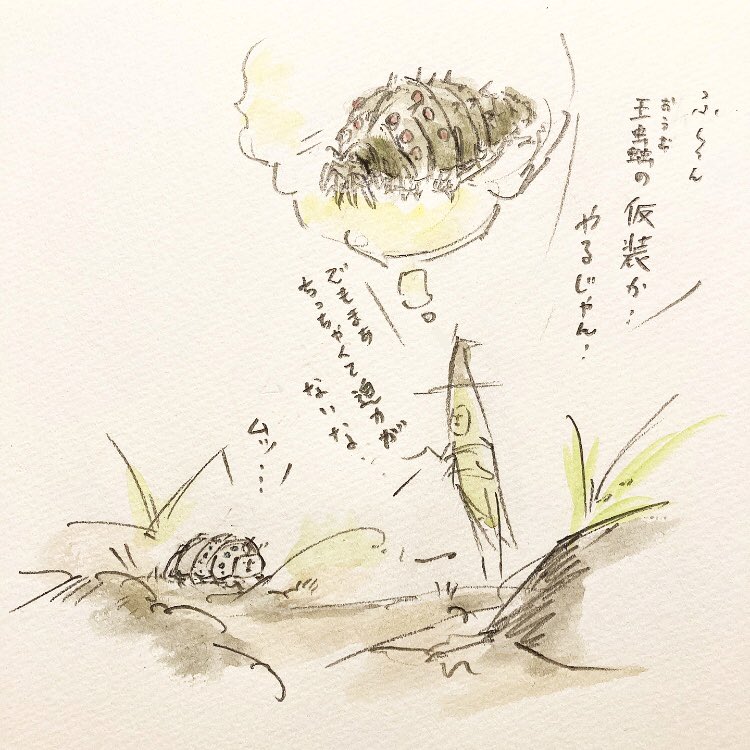 ふぅ〜ん
おうむ
王蟲の仮装か!
やるじゃん!
でもまぁ
ちっちゃくて迫力が
ないな
ムッ…